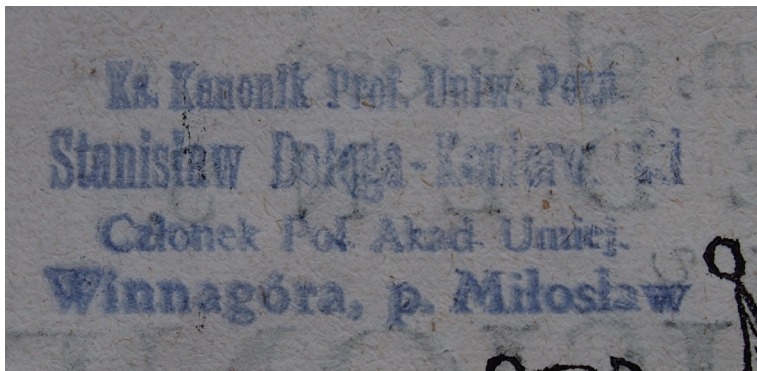 Ks. Kanonik Prof. Uniw. Pozn
Stanisław Dołęga-
Członek Pol Akad. Umiej.
Winnagóra, p. Miłosław